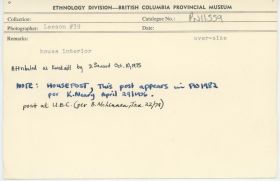 ETHNOLOGY DIVISION—BRITISH COLUMBIA PROVINCIAL MUSEUM
Collection: Catalogue No.: PN11559
Photographer: Leeson #39 Date:
Remarks: over-size
house interior
Attributed to Kimball by Oct. 10, 1975
NOTE: HOUSEPOST, This post appears in PN1982
per K. Neary April 29/1986.
post at U.B.C. (per B. McLennan, Jan 22/98)